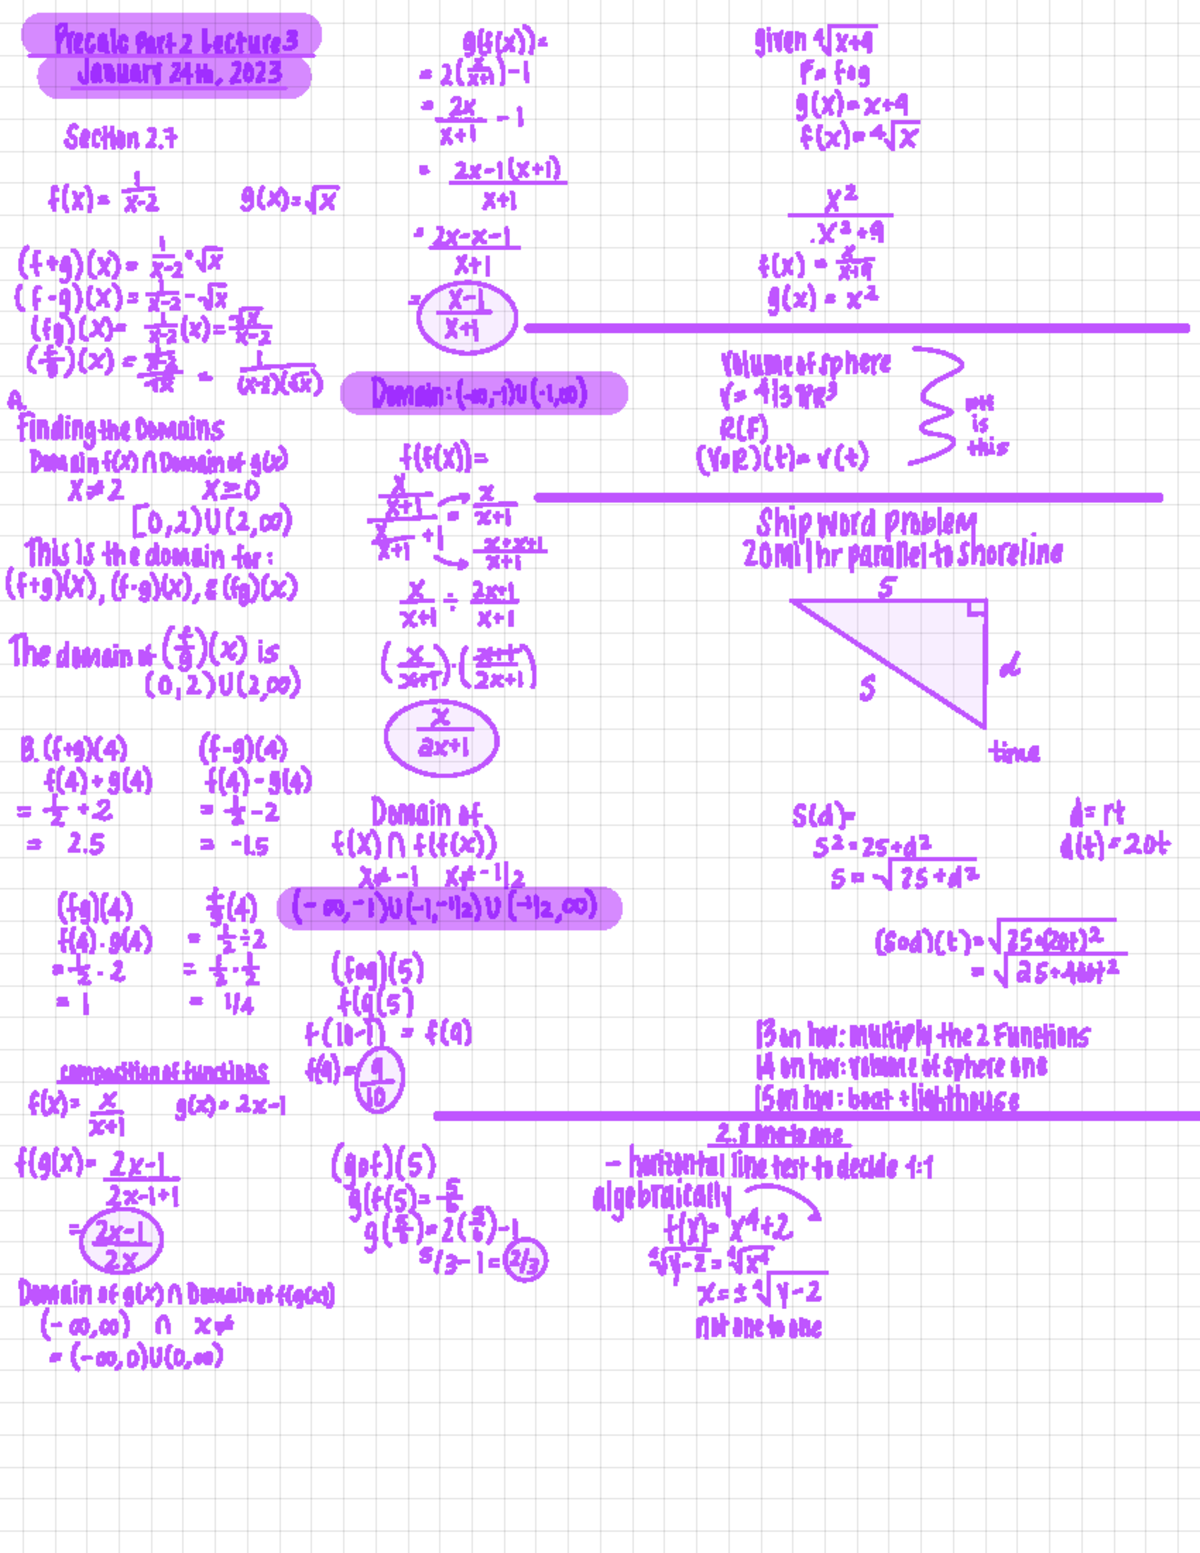 Precalc Part 2 Lecture 3
January 24th, 2023
Section 2.7
f(x) = 1/x-2   g(x) = √x
(f+g)(x) = 1/x-2 + √x
(f-g)(x) = 1/x-2 - √x
(fg)(x) = 1/x-2 (x) = √x/x-2
(f/g)(x) = 1/x-2 / √x = 1/(x-2)(√x)
A.
Finding the Domains
Domain f(x) ∩ Domain of g(x)
x≠2   x≥0
[0,2)U(2,∞)
This is the domain for:
(f+g)(x), (f-g)(x), & (fg)(x)
The domain of (f/g)(x) is
(0,2)U(2,∞)
B. (f+g)(4)   (f-g)(4)
f(4)+g(4)   f(4)-g(4)
= 1/2 + 2   = 1/2 - 2
= 2.5   = -1.5
(fg)(4)   f/g(4)
f(4)·g(4)   = 1/2 ÷ 2
= 1/2 · 2   = 1/2 · 1/2
= 1   = 1/4
composition of functions
f(x) = x/x+1   g(x) = 2x-1
f(g(x) = 2x-1/2x-1+1
= 2x-1/2x
Domain of g(x) ∩ Domain of f(g(x))
(-∞,∞) ∩ x≠
= (-∞,0)U(0,∞)
g(f(x)) =
= 2(x/x+1)-1
= 2x/x+1 - 1
= 2x-1(x+1)/x+1
= 2x-x-1/x+1
= x-1/x+1
Domain: (-∞,-1)U(-1,∞)
f(f(x)) =
x/x+1 / x/x+1 +1 = x/x+1
x+x+1/x+1
x/x+1 ÷ 2x+1/x+1
(x/x+1)·(x+1/2x+1)
x/2x+1
Domain of
f(x) ∩ f(f(x))
x≠-1   x≠-1/2
(-∞,-1)U(-1,-1/2)U(-1/2,∞)
(fog)(5)
f(g(5)
f(10-1) = f(9)
f(9) = 9/10
(gof)(5)
g(f(5) = 5/6
g(5/6) = 2(5/6)-1
5/3-1 = 2/3
given ⁴√x+9
F = fog
g(x) = x+9
f(x) = ⁴√x
x²/x²+9
f(x) = x/x+9
g(x) = x²
Volume of sphere
V = 4/3 πR³
R(F)
(VoR)(t) = v(t)
is
this
Ship word problem
20mi/hr parallel to shoreline
5
d
S
time
S(d)=   d=rt
S²=25+d²   d(t)=20t
S=√25+d²
(Sod)(t)=√25+(20t)²
=√25+400t²
13 on hw: multiply the 2 Functions
14 on hw: volume of sphere one
15 on hw: boat + lighthouse
2.8 one to one
- horizontal line test to decide 1:1
algebraically
f(x) = x⁴+2
⁴√y-2 = ⁴√x⁴
x=± ⁴√y-2
not one to one